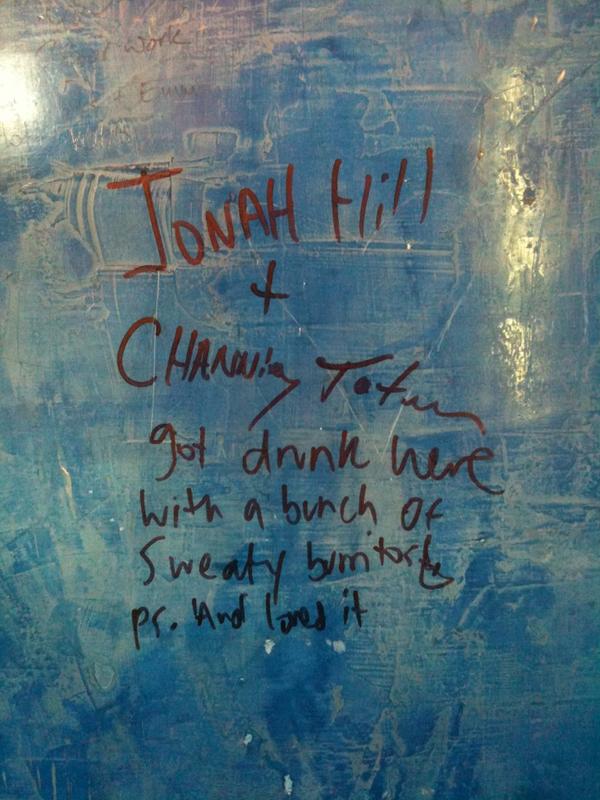 work
+ Emm
JONAH Hill
+
CHANNing Tatum
got drunk here
with a bunch of
Sweaty burritos
ps. And loved it